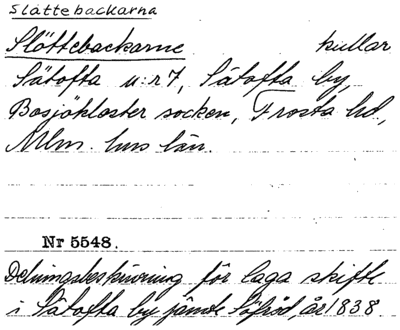 Slåttebackarna
Slöttebackarne kullar
Sätofta u:r 7, Sätofta by,
Bosjökloster socken, Frosta hd,
Mlm. hus län.
Nr 5548.
Delningsbeskrivning för laga skifte
i Sätofta by jämte Söfröd, år 1838.